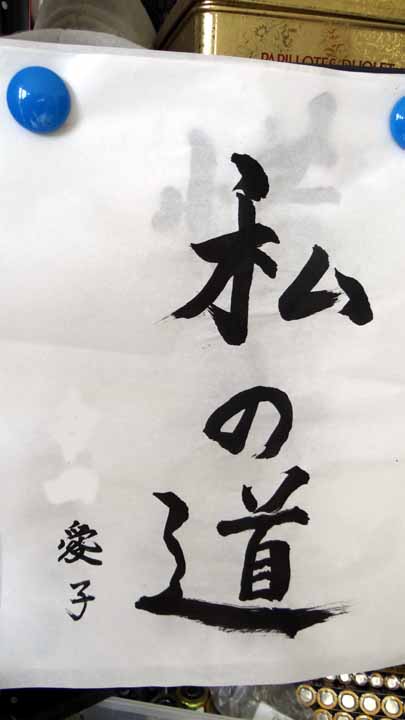 PAPILLOTES
私の道
愛子